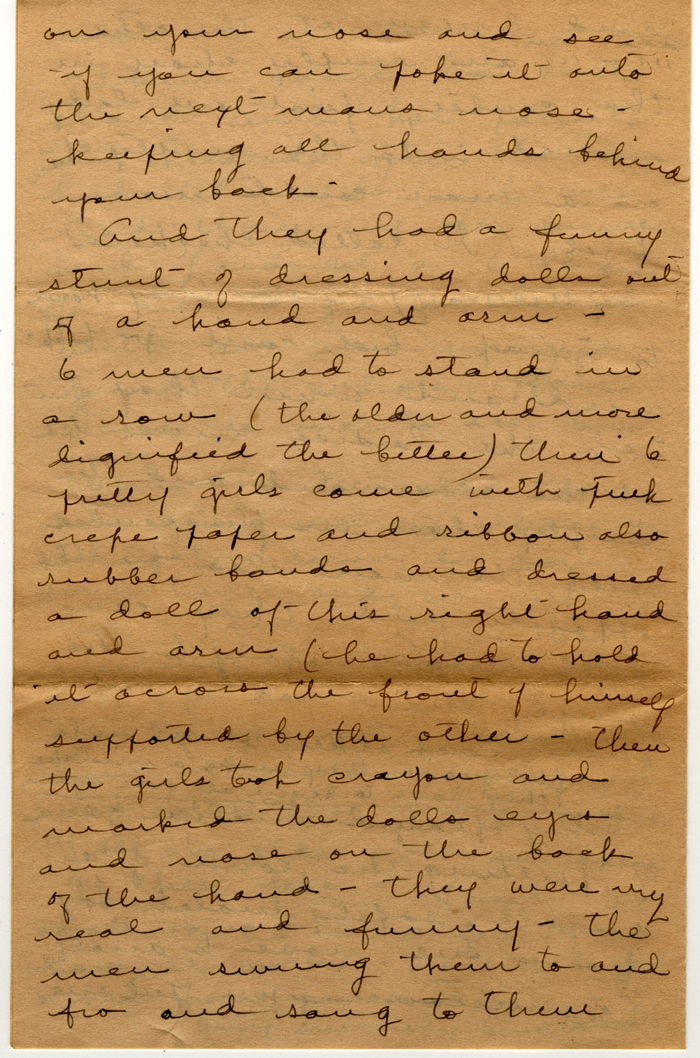 on your nose and see
if you can poke it onto
the next mans nose -
keeping all hands behind
your back -
And they had a funny
stunt of dressing dolls out
of a hand and arm -
6 men had to stand in
a row (the older and more
dignified the better) then 6
pretty girls come with
crepe paper and ribbon also
rubber bands and dressed
a doll of this right hand
and arm (he had to hold
it across the front of himself
supported by the other - then
the girls took crayon and
marked the dolls eyes
and nose on the back
of the hand - they were
real and funny - the
men swung them to and
fro and sang to them